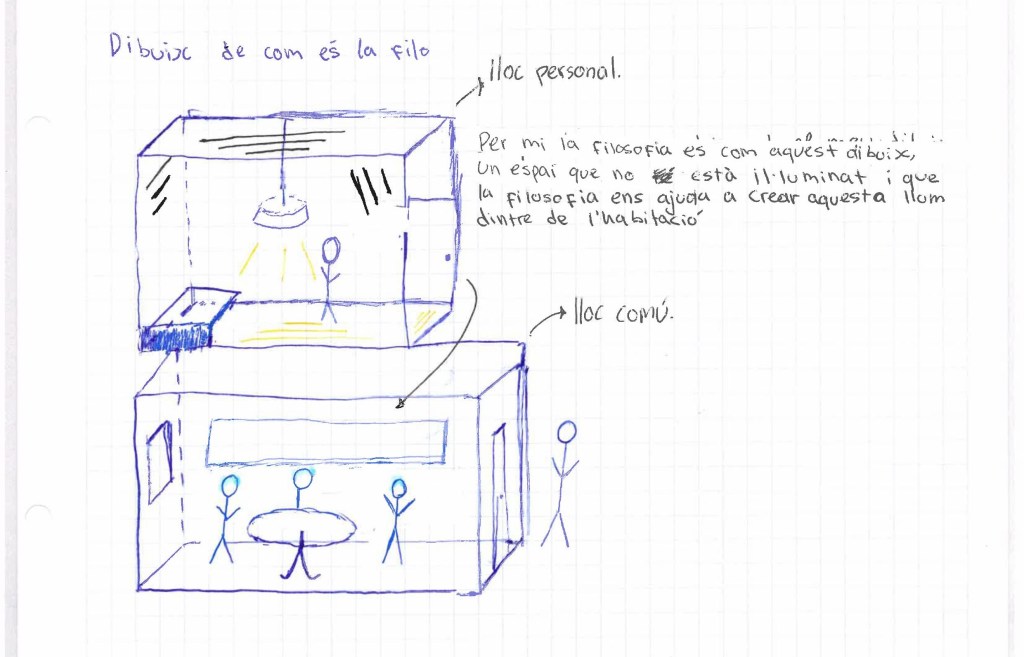 Dibuix de com és la filo
lloc personal.
Per mi la filosofia és com aquest dibuix,
un espai que no està il·luminat i que
la filosofia ens ajuda a crear aquesta llum
dintre de l'habitació
lloc comú.